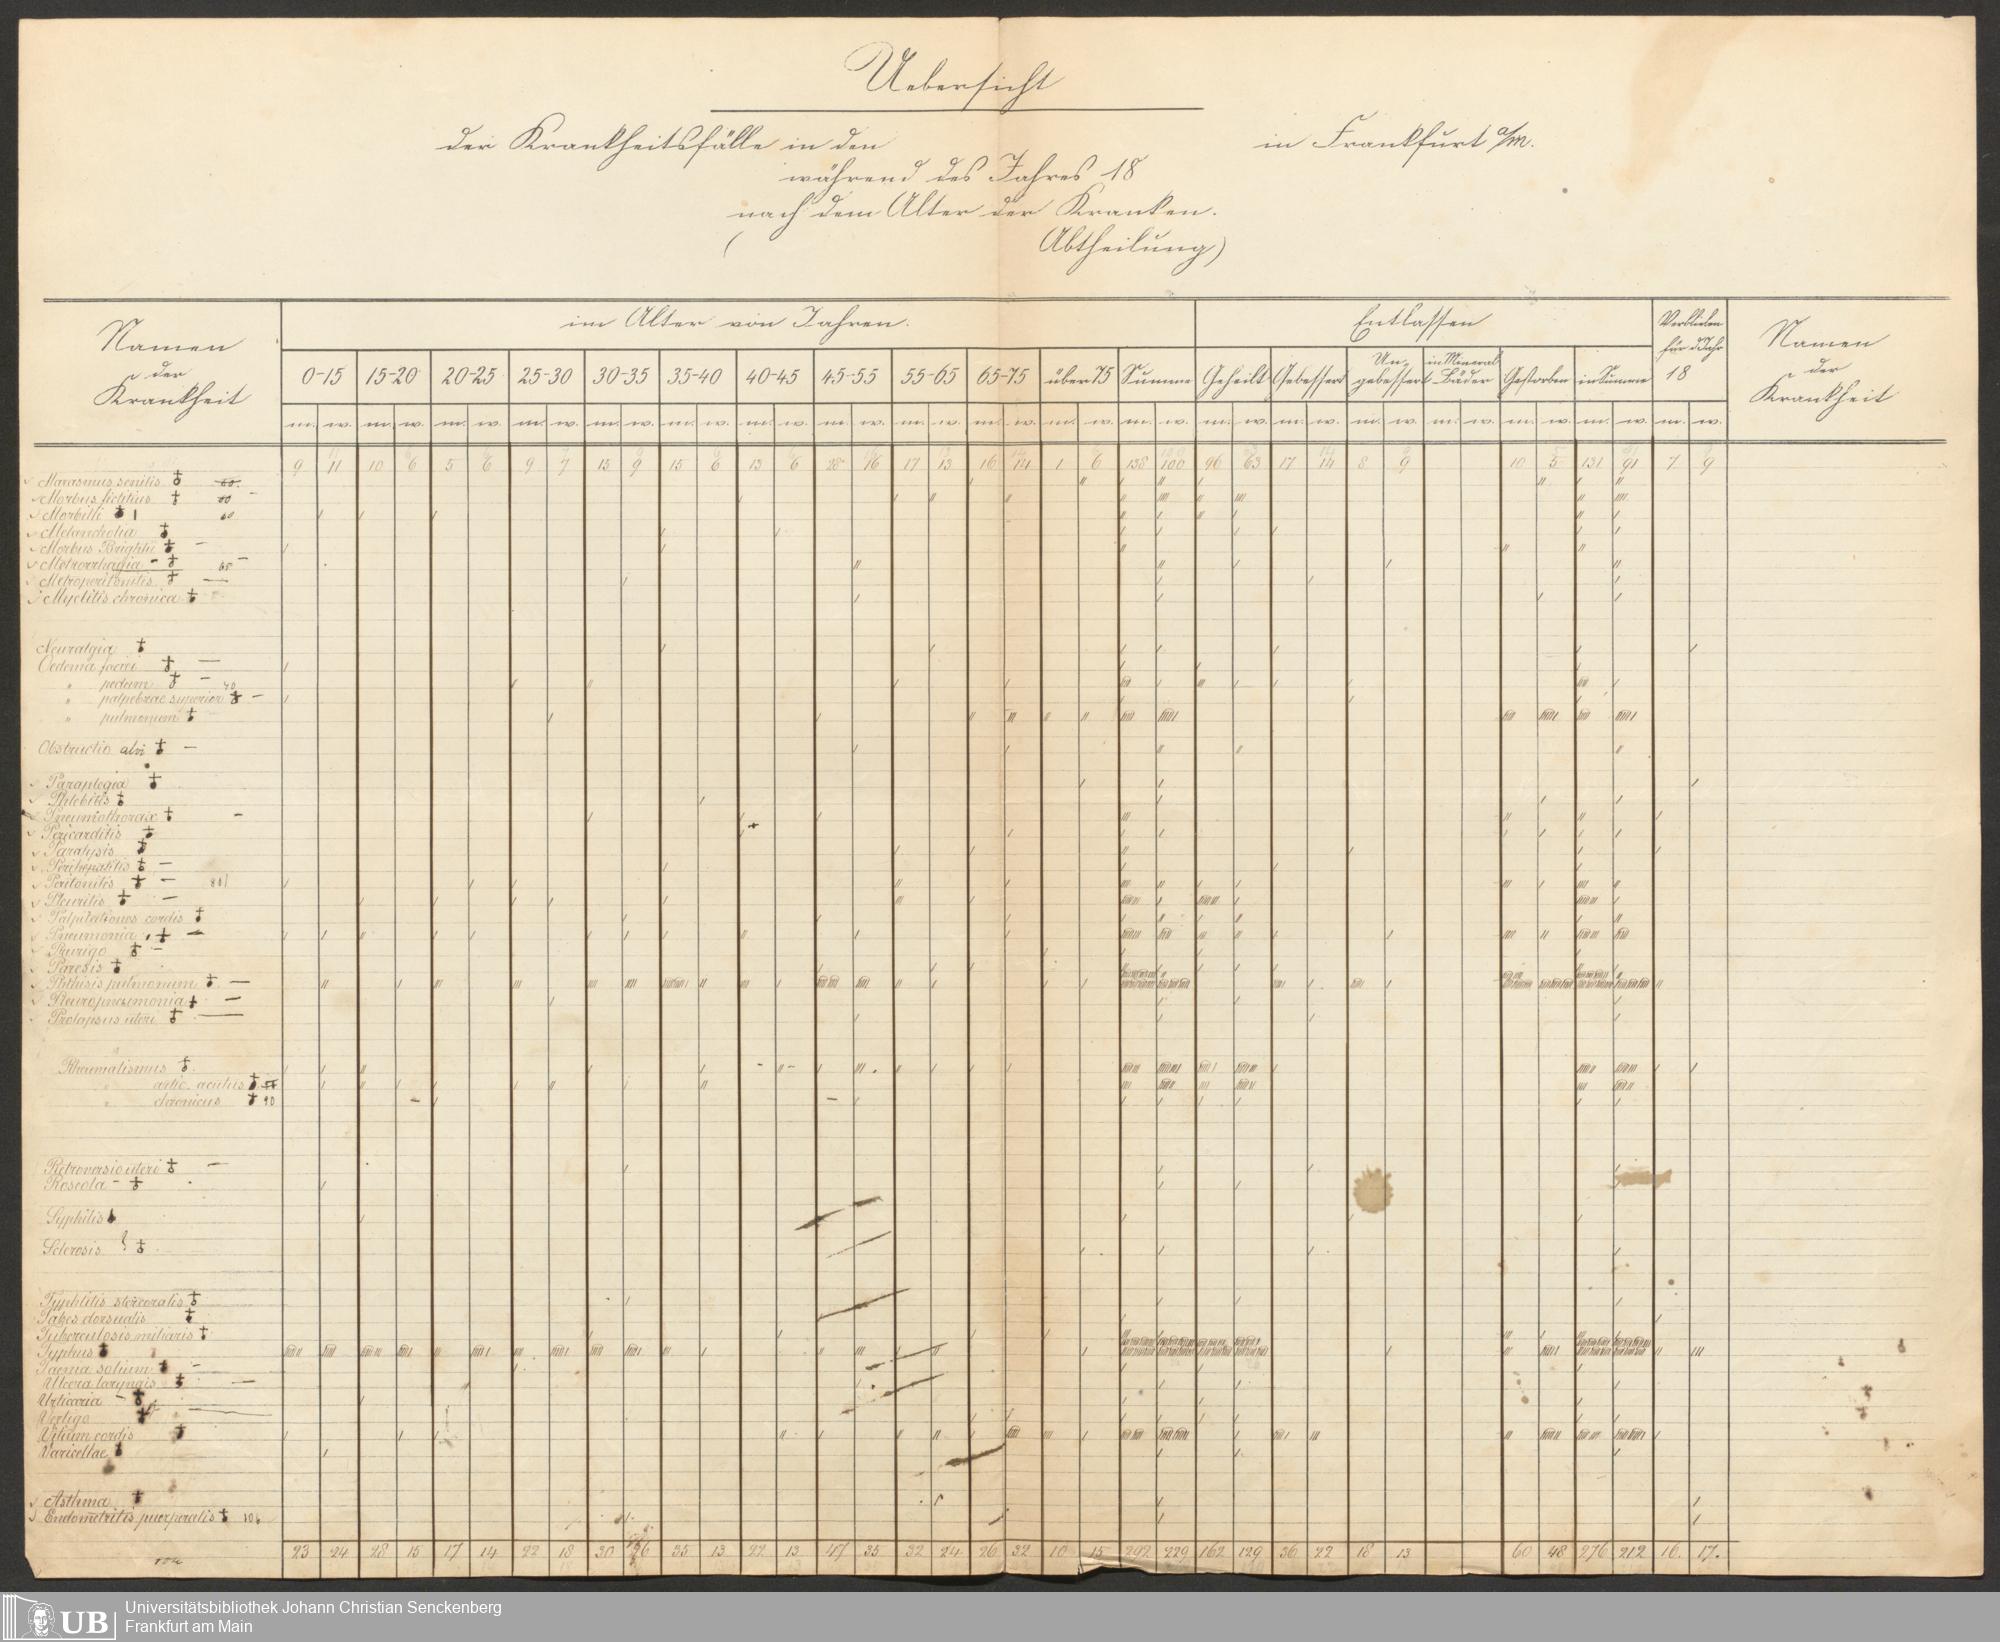 Uebersicht
der Krankheitsfälle in den in Frankfurt a/M.
während des Jahres 18
nach dem Alter der Kranken.
( Abtheilung)
Namen der Krankheit
im Alter von Jahren.
Entlassen
Verblieben für d Jahr 18
Namen der Krankheit
0-15 15-20 20-25 25-30 30-35 35-40 40-45 45-55 55-65 65-75 über 75 Summe Geheilt Gebessert Ungebessert in Mineral Bäder Gestorben in Summe
m. w. m. w. m. w. m. w. m. w. m. w. m. w. m. w. m. w. m. w. m. w. m. w. m. w. m. w. m. w. m. w. m. w. m. w. m. w.
9 11 10 6 5 6 9 7 15 9 15 6 13 6 28 16 17 13 16 14 1 6 138 100 96 63 17 14 8 9 10 5 131 91 7 9
Marasmus senilis
Morbus fictitius
Morbilli
Melancholia
Morbus Brightii
Metrorrhagia
Metroperitonitis
Myelitis chronica
Neuralgia
Oedema faciei
" pedum
" palpebrae superior
" pulmonum
Obstructio alvi
Paraplegia
Phlebitis
Pneumothorax
Pericarditis
Paralysis
Perihepatitis
Peritonitis
Pleuritis
Palpitationes cordis
Pneumonia
Prurigo
Paresis
Phthisis pulmonum
Pleuropneumonia
Prolapsus uteri
Rheumatismus
" artic. acutus
" chronicus 90
Retroversio uteri
Roseola
Syphilis
Sclerosis
Typhlitis stercoralis
Tabes dorsualis
Tuberculosis miliaris
Typhus
Taenia solium
Ulcera laryngis
Urticaria
Vertigo
Vitium cordis
Varicellae
Asthma
Endometritis puerperalis
23 24 28 15 17 14 22 18 30 26 35 13 22 13 47 35 32 24 26 32 10 15 292 229 162 129 36 22 18 13 60 48 276 212 16. 17.
UB
Universitätsbibliothek Johann Christian Senckenberg
Frankfurt am Main